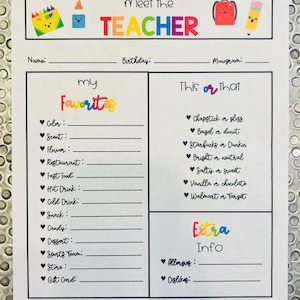 Meet the
TEACHER
Name: Birthday: Monogram:
my
Favorites
Color:
Scent:
Flower:
Restaurant:
Fast food:
Hot Drink:
Cold Drink:
Snack:
Candy:
Dessert:
Sports Team:
Store:
Gift Card:
This or that
Chapstick or gloss
Bagel or donut
Starbucks or Dunkin
Bright or neutral
Salty or sweet
Vanilla or chocolate
Walmart or Target
Extra
Info
Allergies:
Dislikes: